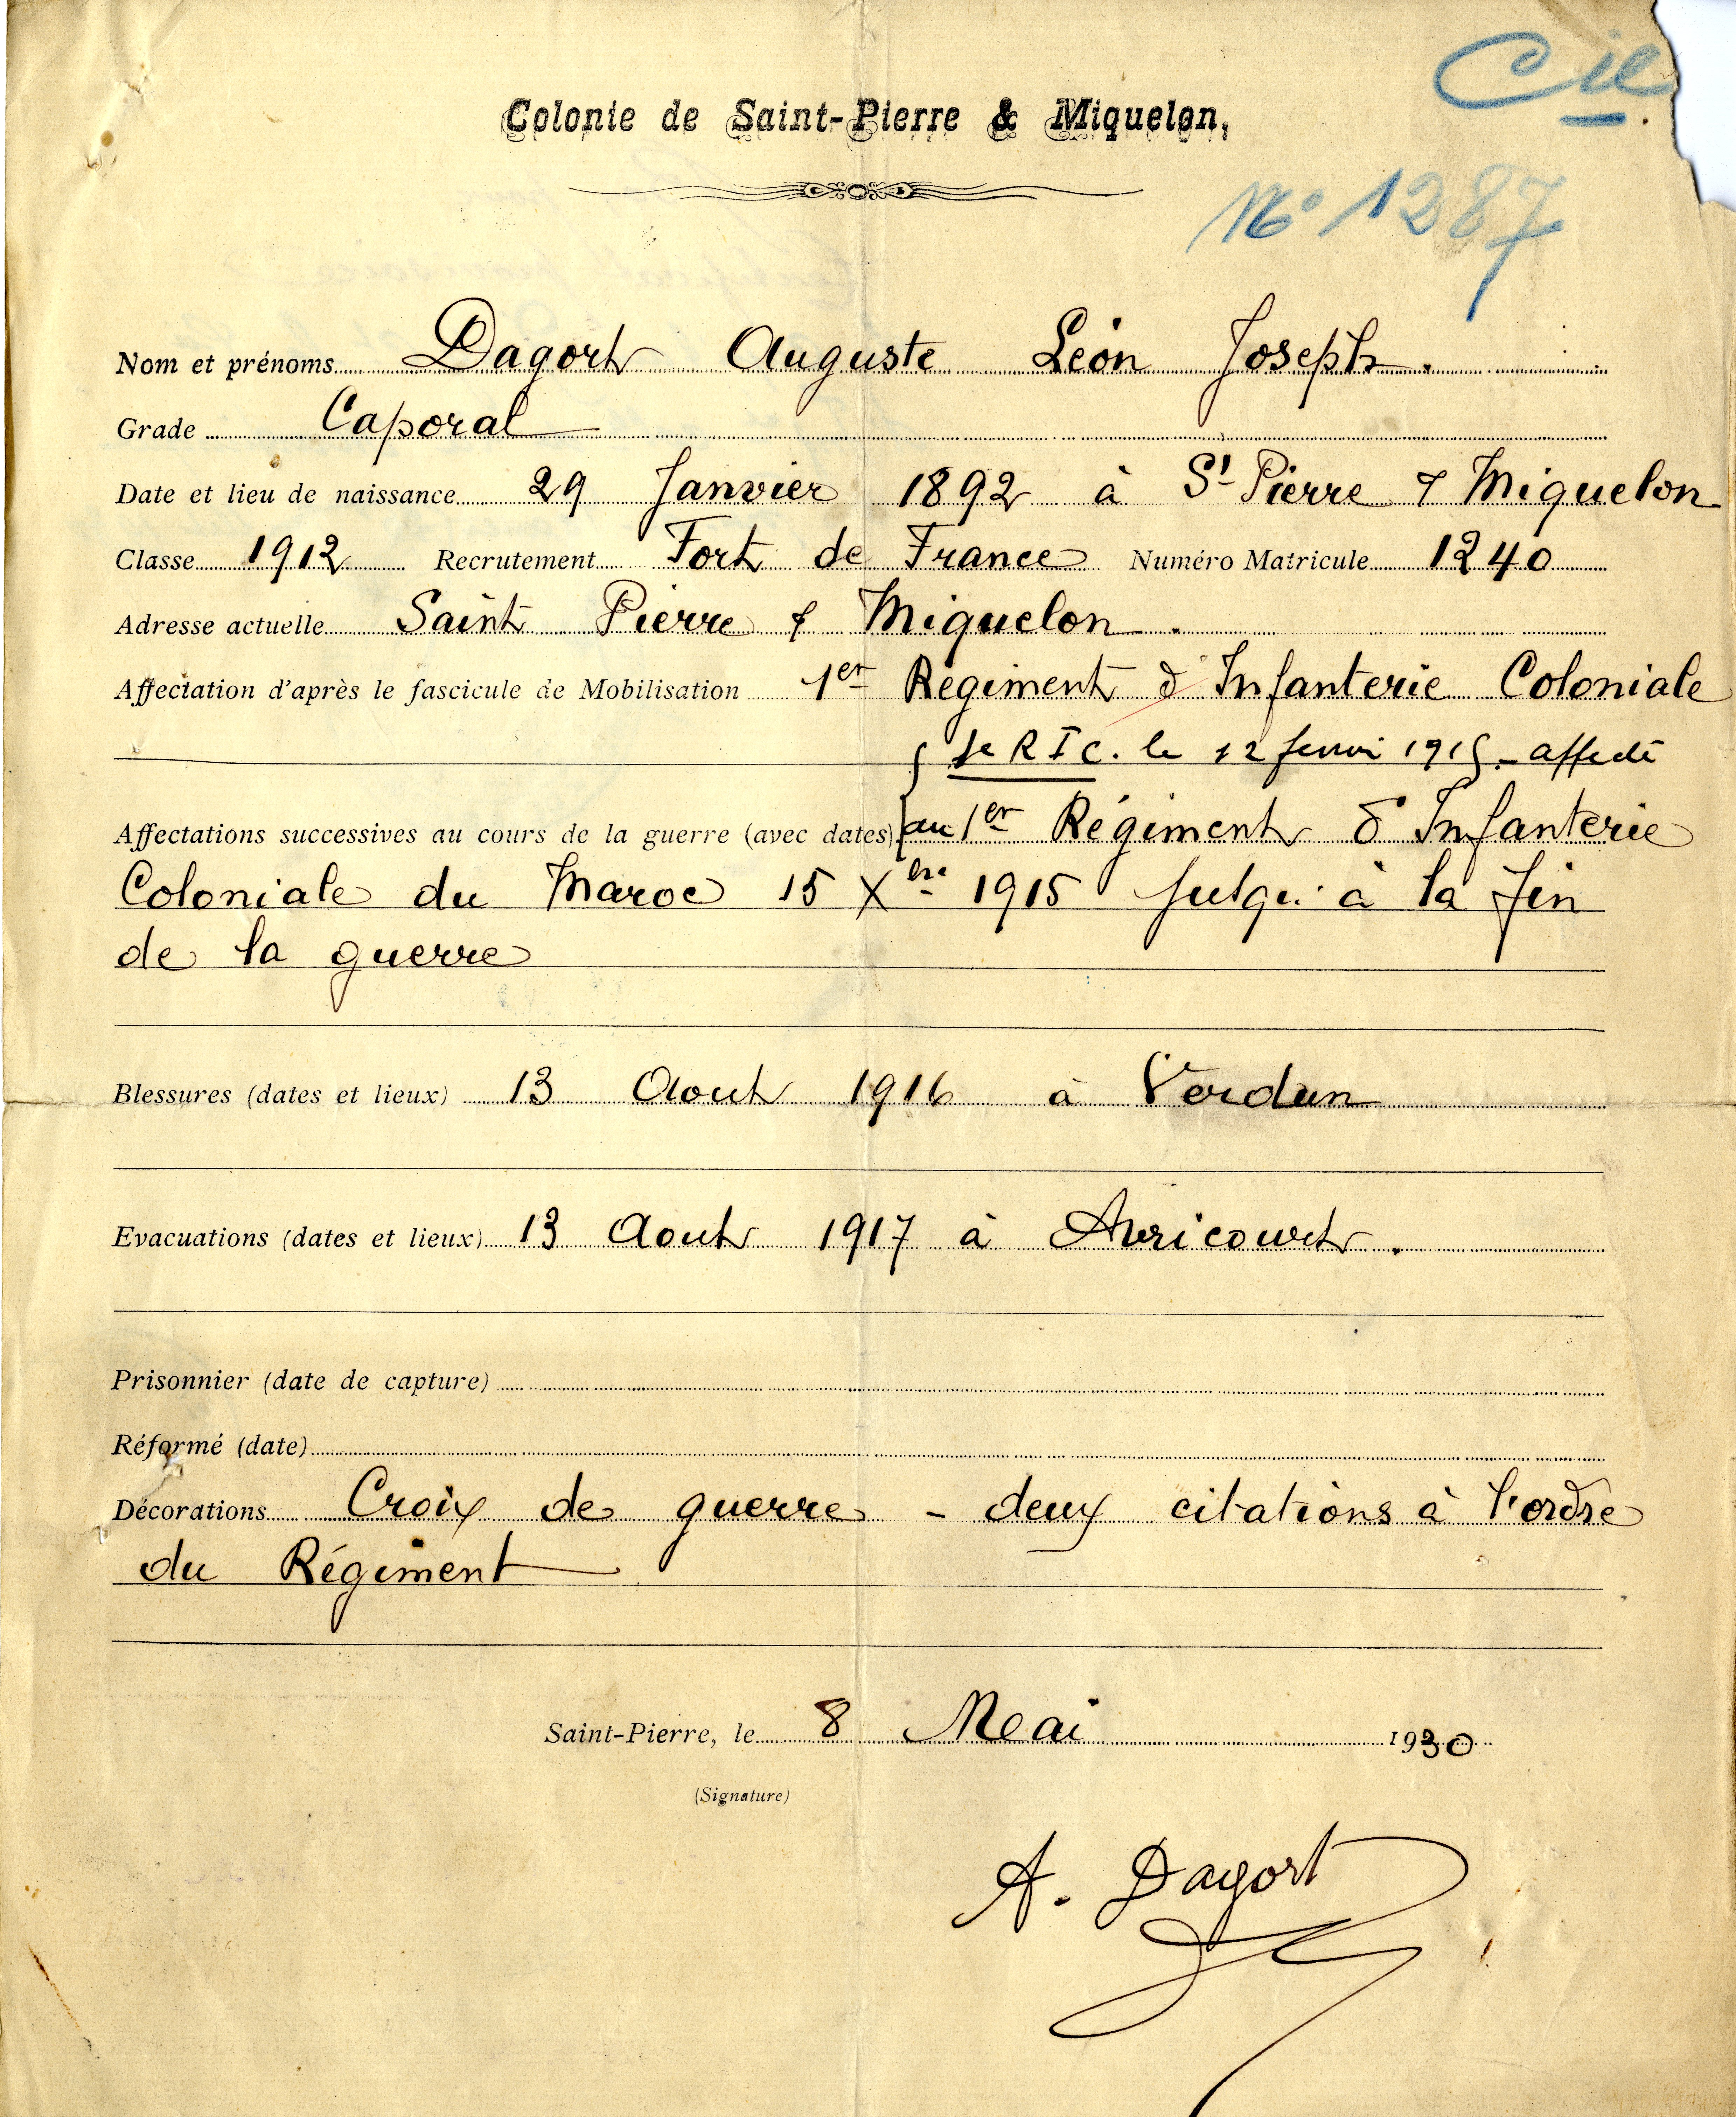 Cie
Colonie de Saint-Pierre & Miquelon.
No 1287
Nom et prénoms Dagort Auguste Léon Joseph.
Grade Caporal
Date et lieu de naissance 29 Janvier 1892 à St Pierre & Miquelon
Classe 1912 Recrutement Fort de France Numéro Matricule 1240
Adresse actuelle Saint Pierre & Miquelon.
Affectation d'après le fascicule de Mobilisation 1er Régiment d'Infanterie Coloniale
RIC. le 12 1915 - affecté
Affectations successives au cours de la guerre (avec dates) au 1er Régiment d'Infanterie
Coloniale du Maroc 15 Xbre 1915 Jusqu'à la fin
de la guerre
Blessures (dates et lieux) 13 Aout 1916 à Verdun
Evacuations (dates et lieux) 13 Aout 1917 à Avricourt.
Prisonnier (date de capture)
Réformé (date)
Décorations Croix de guerre - deux citations à l'ordre
du Régiment
Saint-Pierre, le 8 Mai 1930
(Signature)
A. Dagort